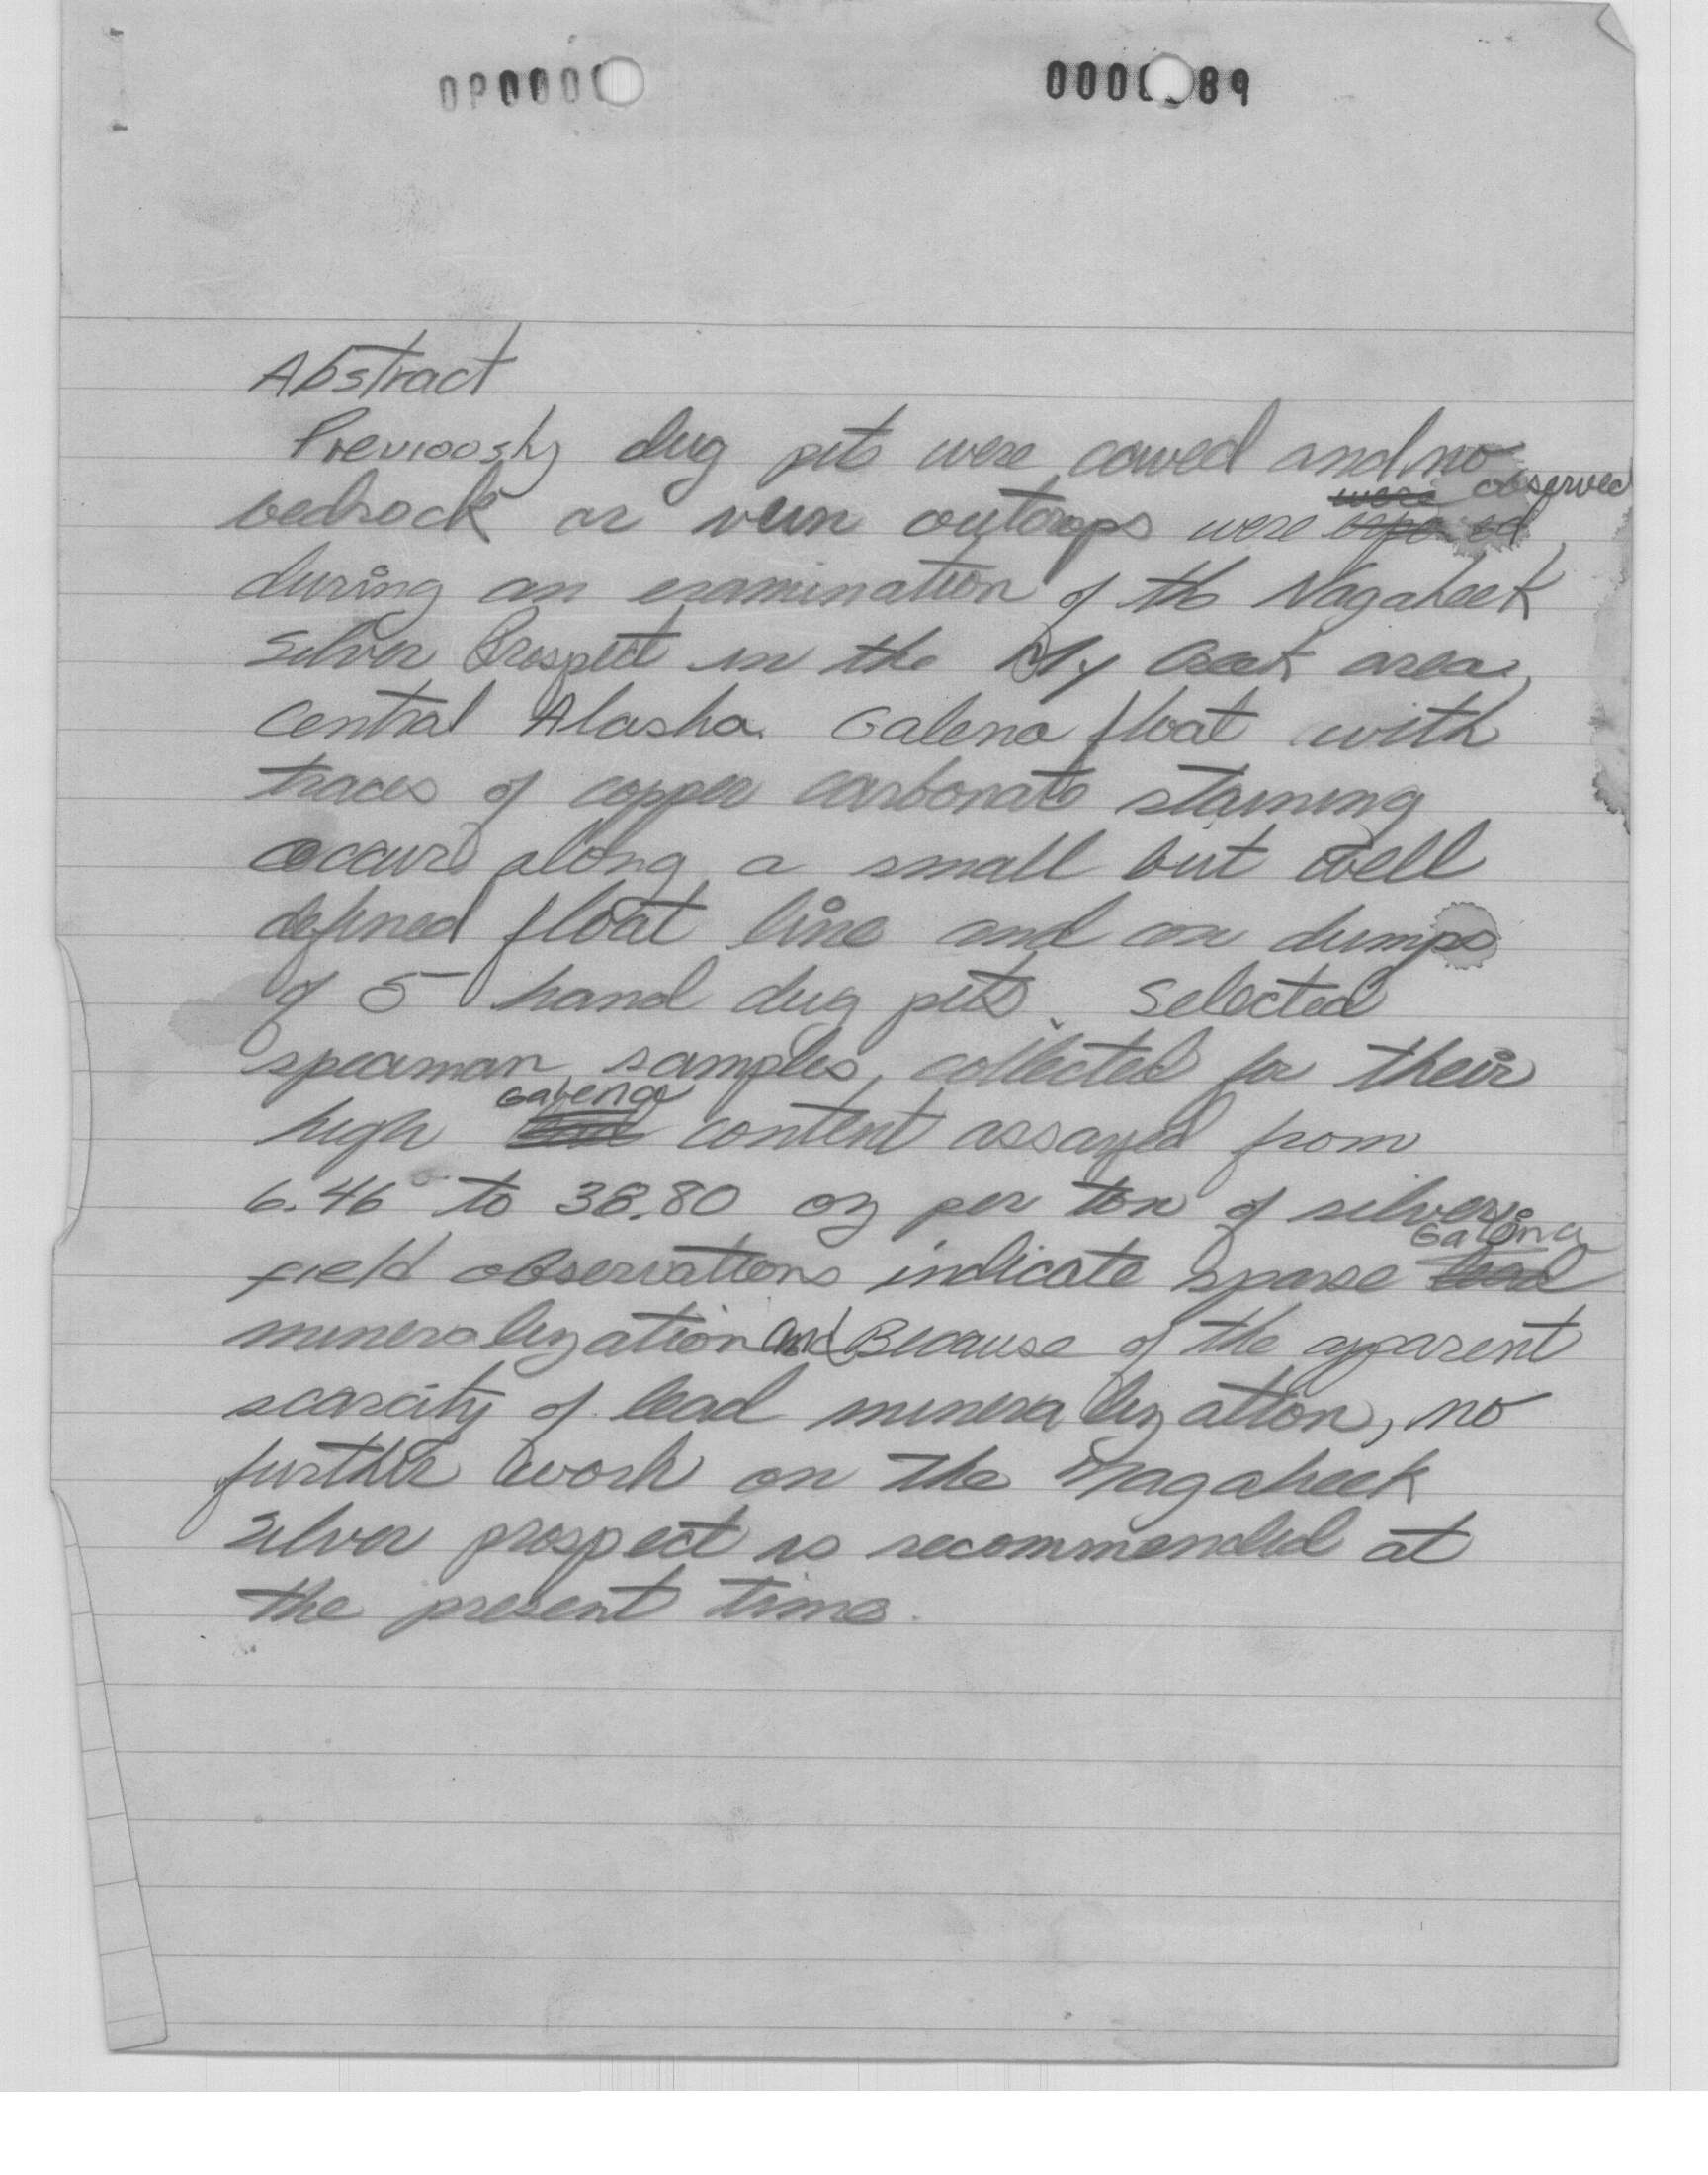 Abstract
Previoosly dug pits were caved and no
bedrock or vein outcrops were observed
during an examination of the Nagaheek
Silver Prospect in the My Creek area,
Central Alaska. Galena float with
traces of copper carbonate staining
occurs along a small but well
defined float line and on dumps
of 5 hand dug pits. Selected
speciman samples, collected for their
high Galena content assayed from
6.46 to 38.80 oz per ton of silver.
field observations indicate sparse Galena
mineralization and Because of the apparent
scarcity of lead mineralization, no
further work on the Nagaheek
Silver prospect is recommended at
the present time.